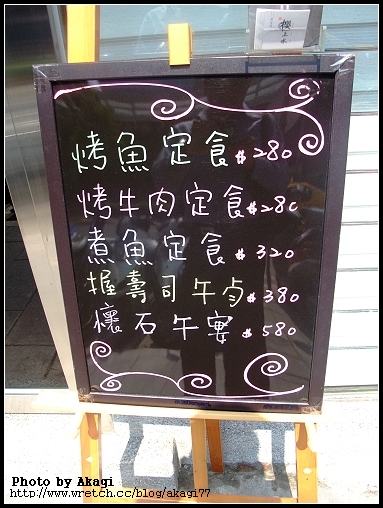 櫻上水
烤魚定食$280
烤牛肉定食$280
煮魚定食$320
握壽司午勻$380
懷石午宴$580
Photo by Akagi
http://www.wretch.cc/blog/akagi77